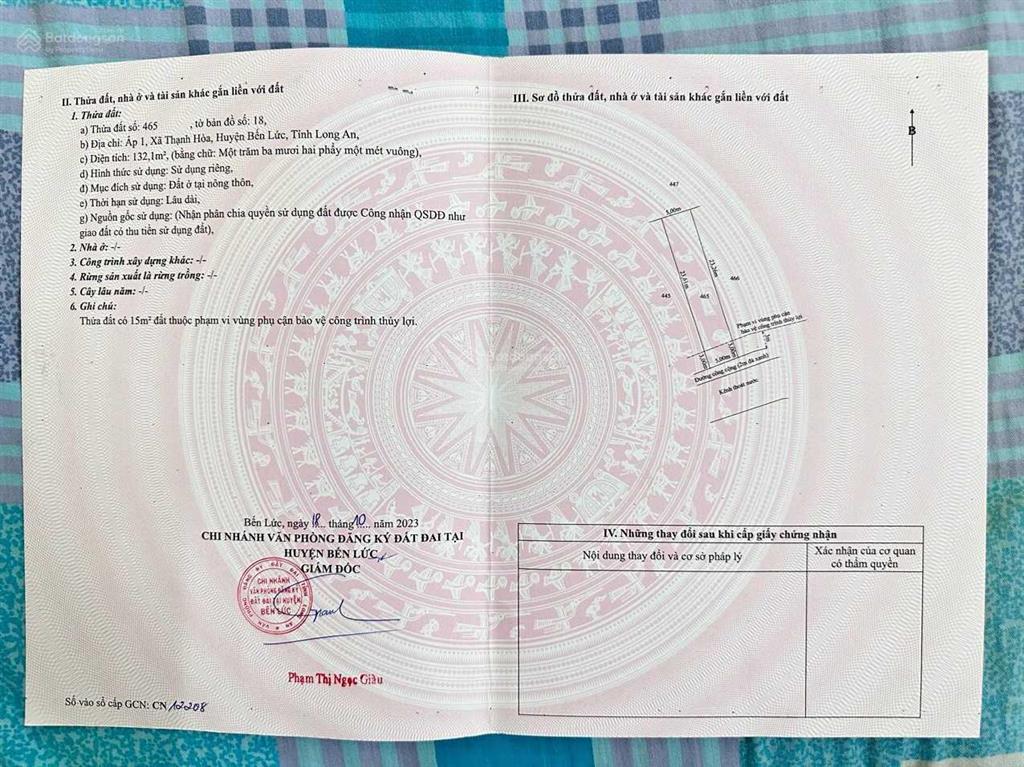 Batdongsan
by PropertyGuru
II. Thửa đất, nhà ở và tài sản khác gắn liền với đất
1. Thửa đất:
a) Thửa đất số: 465 , tờ bản đồ số: 18,
b) Địa chỉ: Ấp 1, Xã Thạnh Hòa, Huyện Bến Lức, Tỉnh Long An,
c) Diện tích: 132,1m², (bằng chữ: Một trăm ba mươi hai phẩy một mét vuông),
d) Hình thức sử dụng: Sử dụng riêng,
đ) Mục đích sử dụng: Đất ở tại nông thôn,
e) Thời hạn sử dụng: Lâu dài,
g) Nguồn gốc sử dụng: (Nhận phân chia quyền sử dụng đất được Công nhận QSDĐ như
giao đất có thu tiền sử dụng đất),
2. Nhà ở: -/-
3. Công trình xây dựng khác: -/-
4. Rừng sản xuất là rừng trồng: -/-
5. Cây lâu năm: -/-
6. Ghi chú:
Thửa đất có 15m² đất thuộc phạm vi vùng phụ cận bảo vệ công trình thủy lợi.
Bến Lức, ngày 18 tháng 10 năm 2023
CHI NHÁNH VĂN PHÒNG ĐĂNG KÝ ĐẤT ĐAI TẠI
HUYỆN BẾN LỨC
GIÁM ĐỐC
CHI NHÁNH
VĂN PHÒNG ĐĂNG KÝ
ĐẤT ĐAI TẠI HUYỆN
BẾN LỨC
Phạm Thị Ngọc Giàu
Số vào sổ cấp GCN: CN 12208
III. Sơ đồ thửa đất, nhà ở và tài sản khác gắn liền với đất
B
447
5,00m
23,26m
23,61m
466
445
465
Phạm vi vùng phụ cận
bảo vệ công trình thủy lợi
3,00m
3,00m
5,00m
Đường công cộng (2m đá xanh)
Kênh thoát nước
IV. Những thay đổi sau khi cấp giấy chứng nhận
Nội dung thay đổi và cơ sở pháp lý
Xác nhận của cơ quan
có thẩm quyền